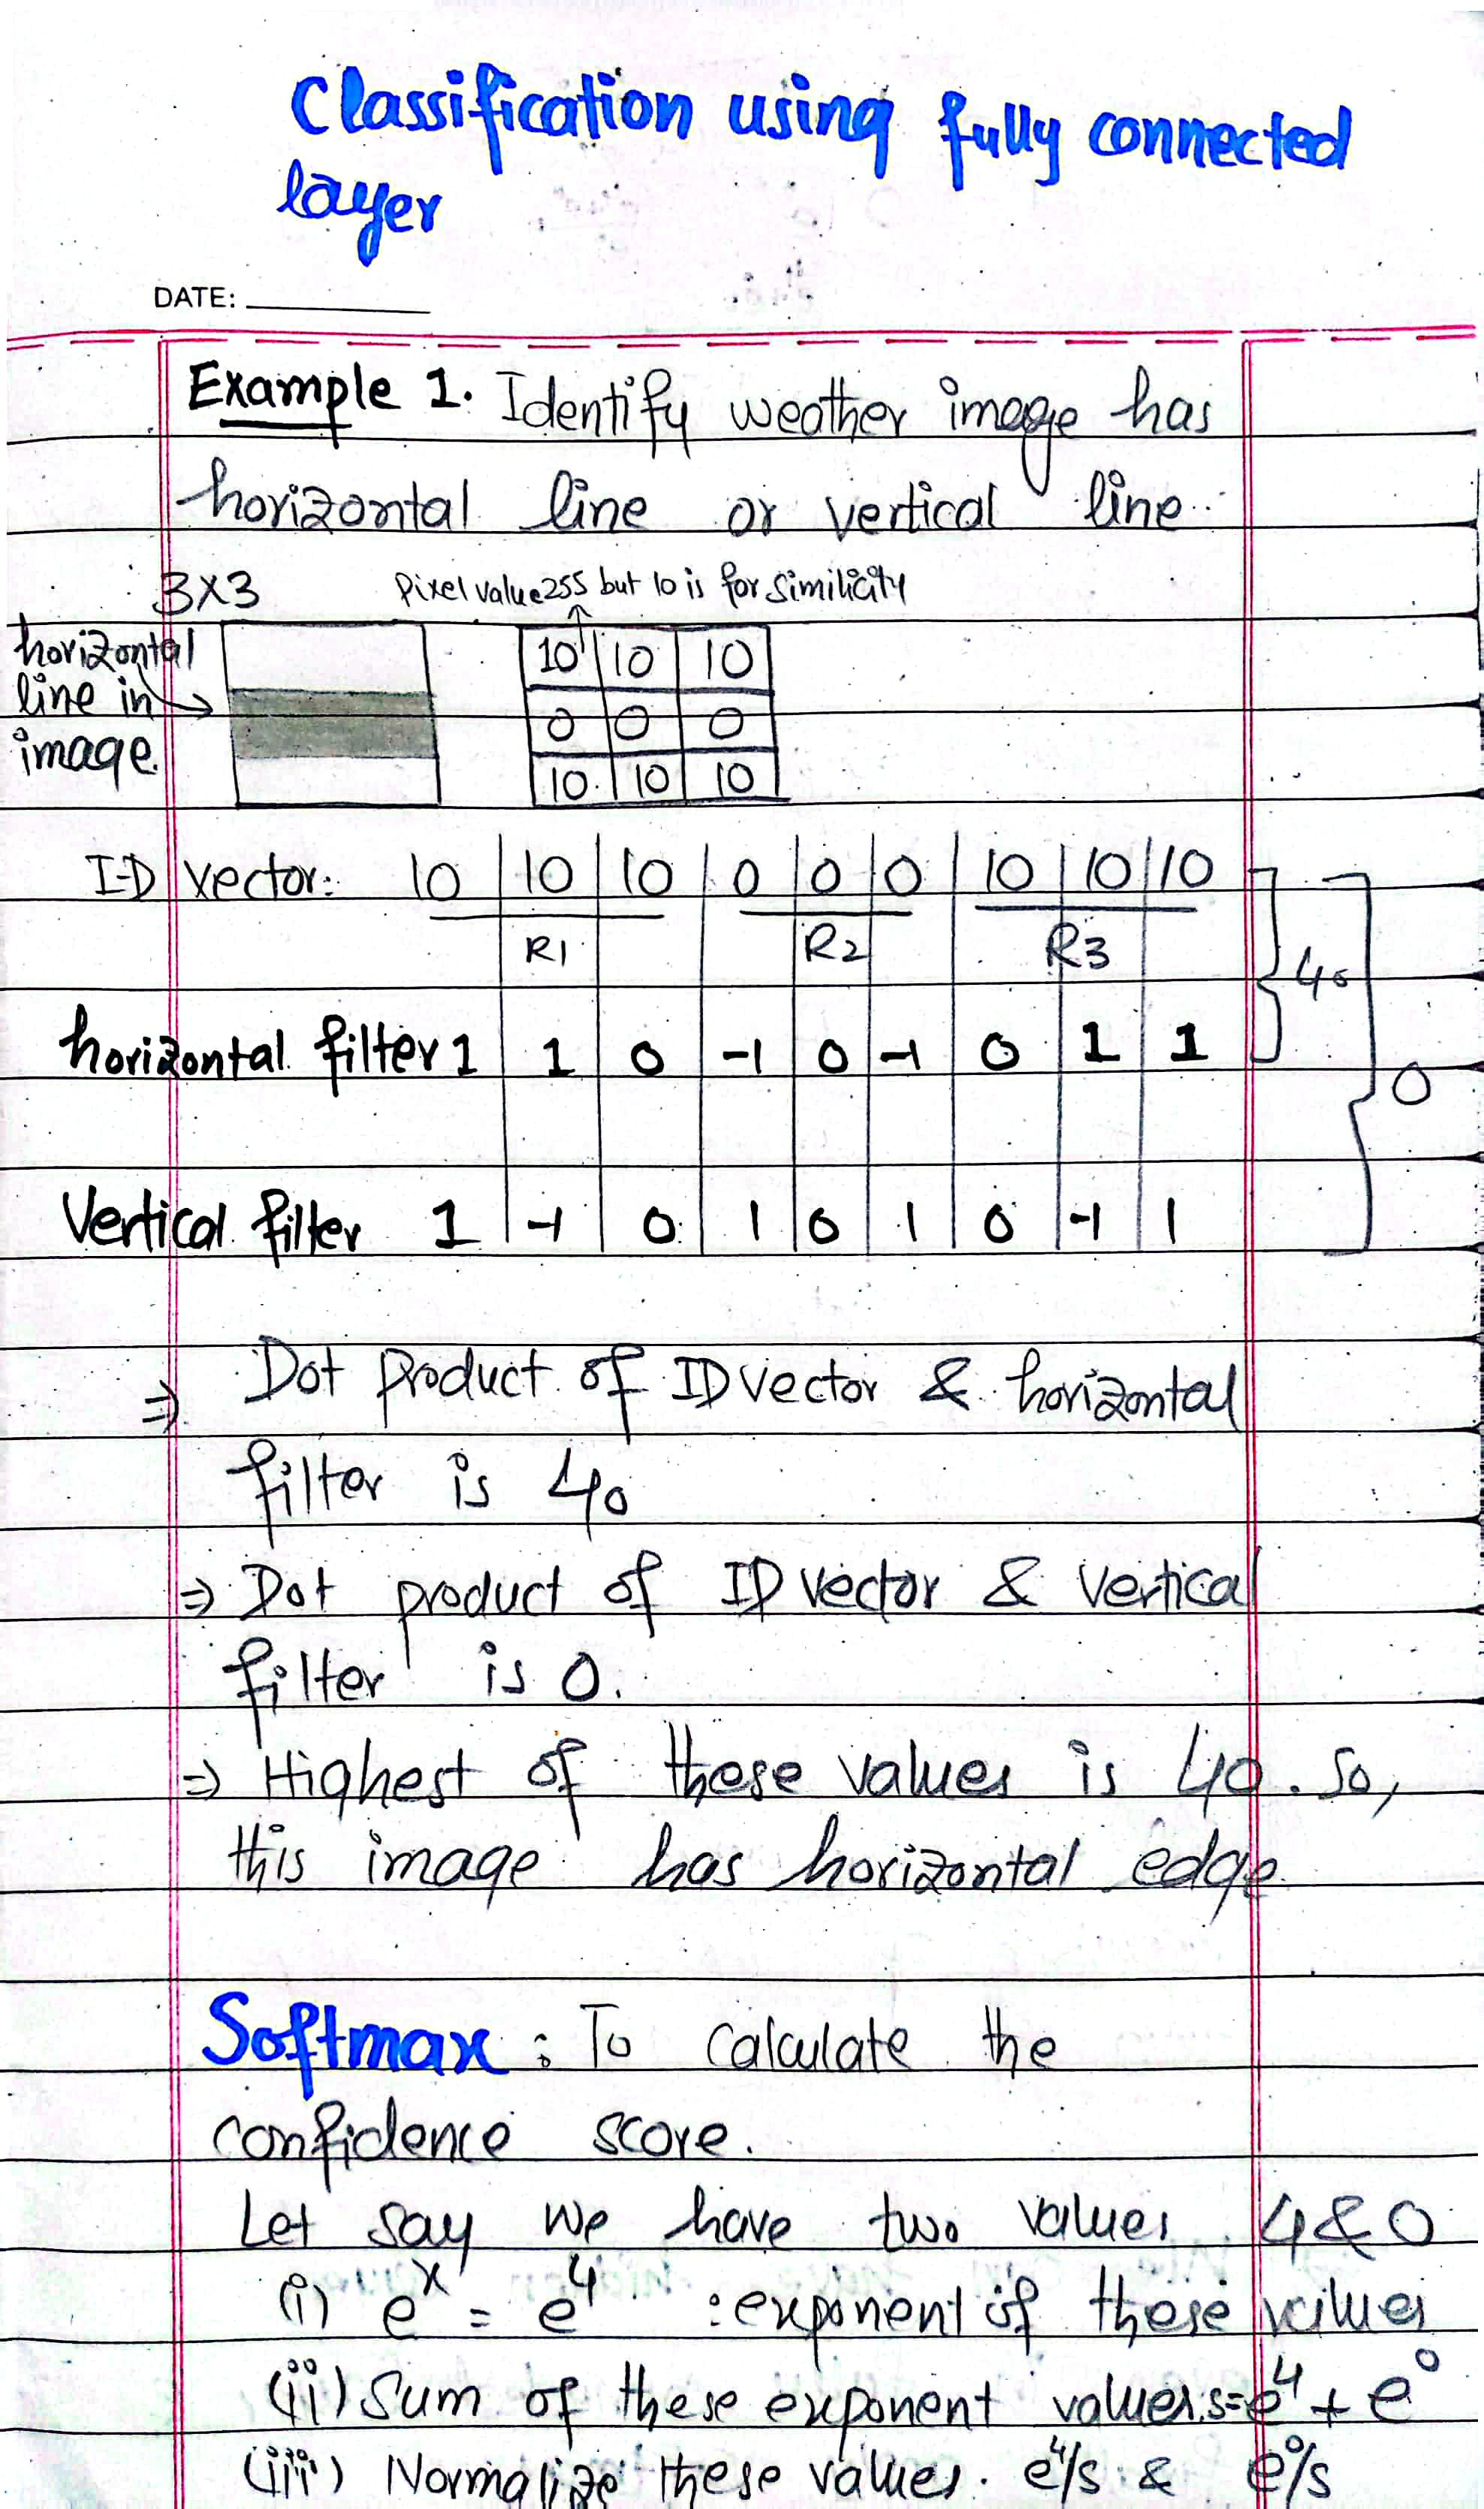 Classification using fully connected
layer
DATE:
Example 1. Identify weather image has
horizontal line or vertical line
3X3 Pixel value 255 but 10 is for similicity
horizontal
line in
image.
10 10 10
0 0 0
10 10 10
1-D vector: 10 10 10 0 0 0 10 10 10
R1 R2 R3
40
horizontal filter 1 1 0 -1 0 -1 0 1 1
0
Vertical filter 1 -1 0 1 0 1 0 -1 1
⇒ Dot product of 1D vector & horizontal
filter is 40
⇒ Dot product of 1D vector & vertical
filter is 0.
⇒ Highest of these values is 40. So,
this image has horizontal edge
Softmax: To calculate the
confidence score.
Let say we have two values 4 & 0
(i) e^x = e^4 : exponent of these values
(ii) Sum of these exponent values s=e^4 + e^0
(iii) Normalize these values. e^4/s & e^0/s